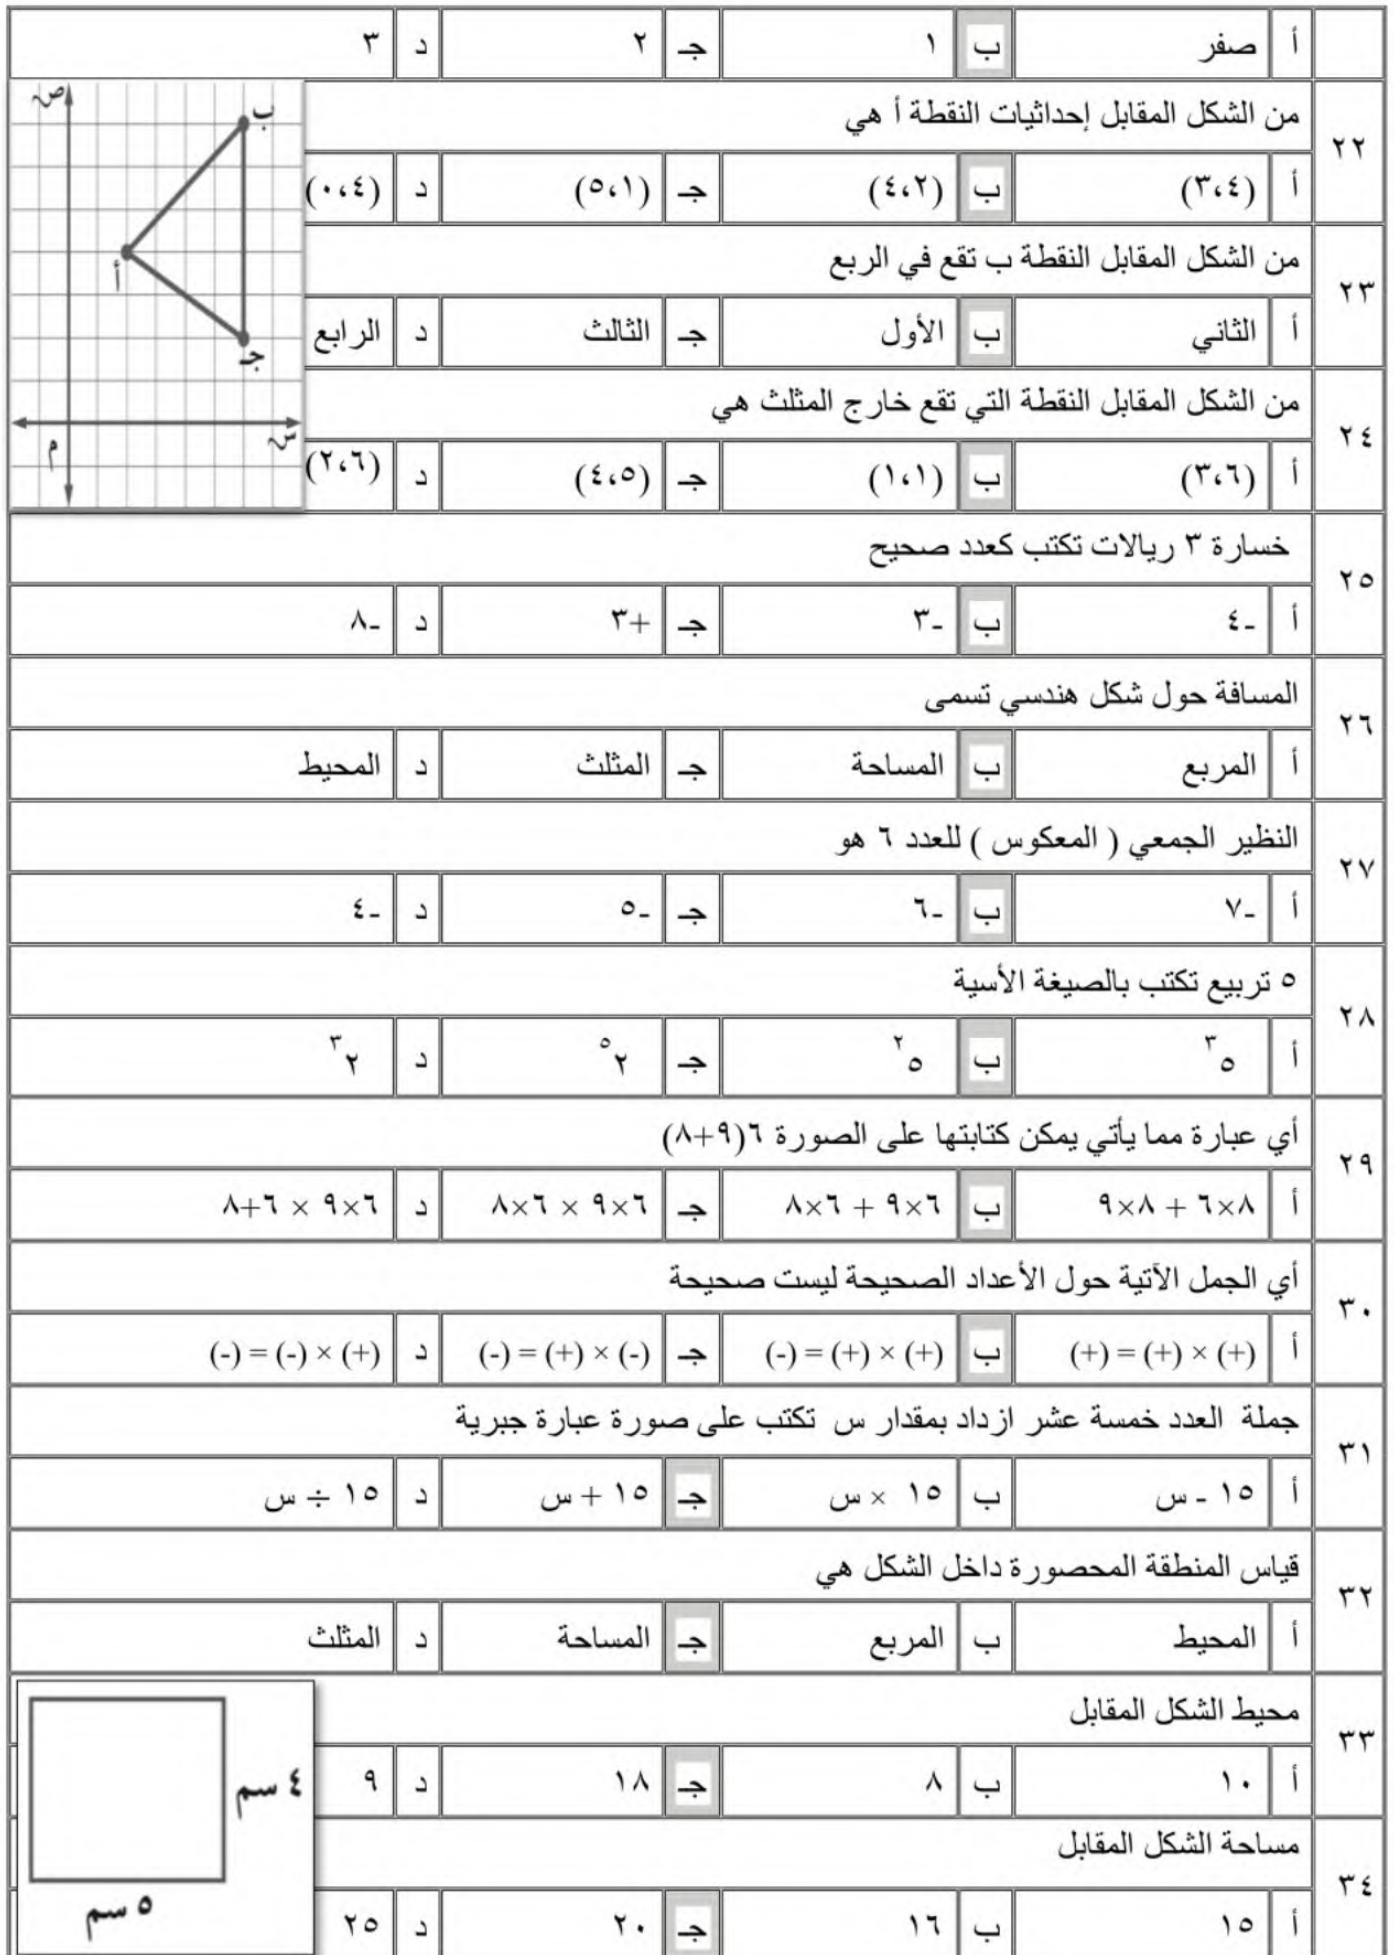 أ صفر ب ١ جـ ٢ د ٣
٢٢ من الشكل المقابل إحداثيات النقطة أ هي
أ (٣،٤) ب (٤،٢) جـ (٥،١) د (٠،٤)
٢٣ من الشكل المقابل النقطة ب تقع في الربع
أ الثاني ب الأول جـ الثالث د الرابع
٢٤ من الشكل المقابل النقطة التي تقع خارج المثلث هي
أ (٣،٦) ب (١،١) جـ (٤،٥) د (٢،٦)
ص
ب
أ
جـ
س
م
٢٥ خسارة ٣ ريالات تكتب كعدد صحيح
أ -٤ ب -٣ جـ +٣ د -٨
٢٦ المسافة حول شكل هندسي تسمى
أ المربع ب المساحة جـ المثلث د المحيط
٢٧ النظير الجمعي ( المعكوس ) للعدد ٦ هو
أ -٧ ب -٦ جـ -٥ د -٤
٢٨ ٥ تربيع تكتب بالصيغة الأسية
أ ٥^٣ ب ٥^٢ جـ ٢^٥ د ٢^٣
٢٩ أي عبارة مما يأتي يمكن كتابتها على الصورة ٦(٩+٨)
أ ٨×٦ + ٨×٩ ب ٦×٩ + ٦×٨ جـ ٦×٩ × ٦×٨ د ٦×٩ × ٦+٨
٣٠ أي الجمل الآتية حول الأعداد الصحيحة ليست صحيحة
أ (+) × (+) = (+) ب (+) × (+) = (-) جـ (-) × (+) = (-) د (+) × (-) = (-)
٣١ جملة العدد خمسة عشر ازداد بمقدار س تكتب على صورة عبارة جبرية
أ ١٥ - س ب ١٥ × س جـ ١٥ + س د ١٥ ÷ س
٣٢ قياس المنطقة المحصورة داخل الشكل هي
أ المحيط ب المربع جـ المساحة د المثلث
٣٣ محيط الشكل المقابل
أ ١٠ ب ٨ جـ ١٨ د ٩
٣٤ مساحة الشكل المقابل
أ ١٥ ب ١٦ جـ ٢٠ د ٢٥
٤ سم
٥ سم